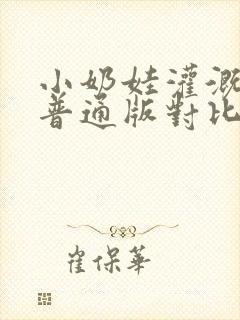 小奶娃灌溉
普通版對比
崔保華